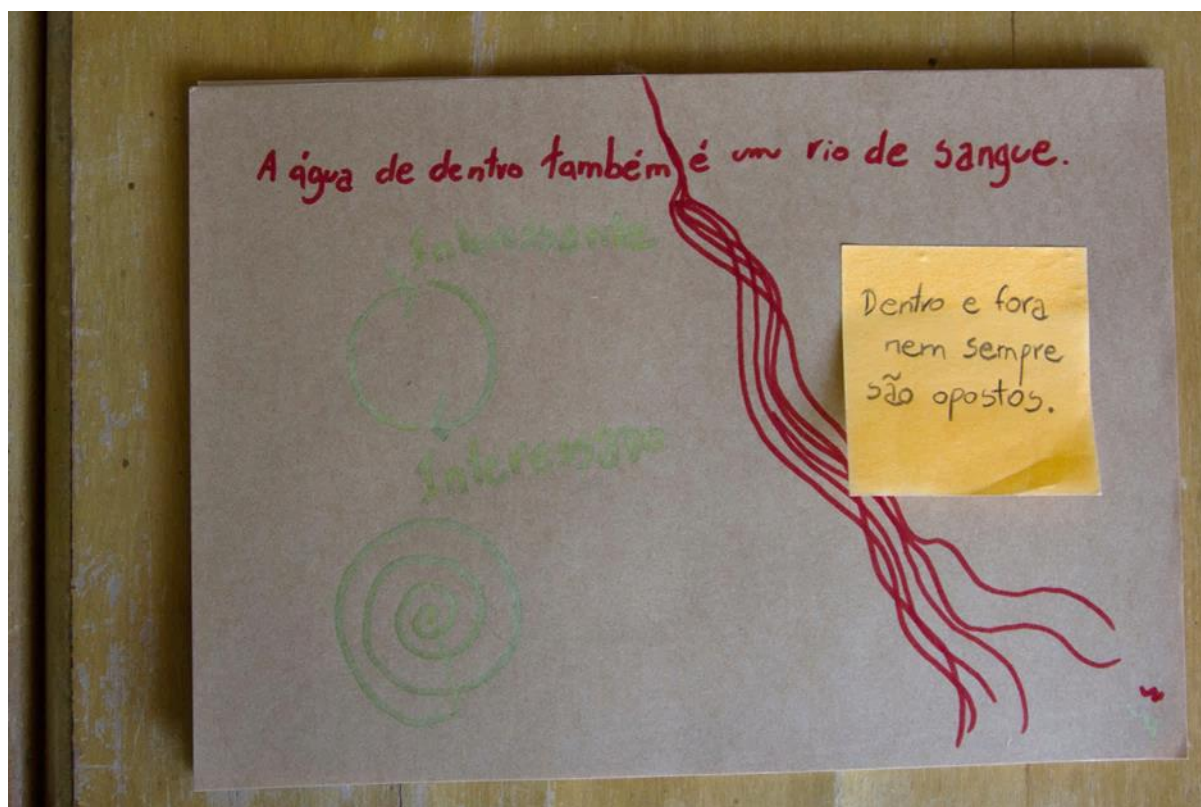 A água de dentro também é um rio de sangue.
Interessante
Dentro e fora
nem sempre
são opostos.